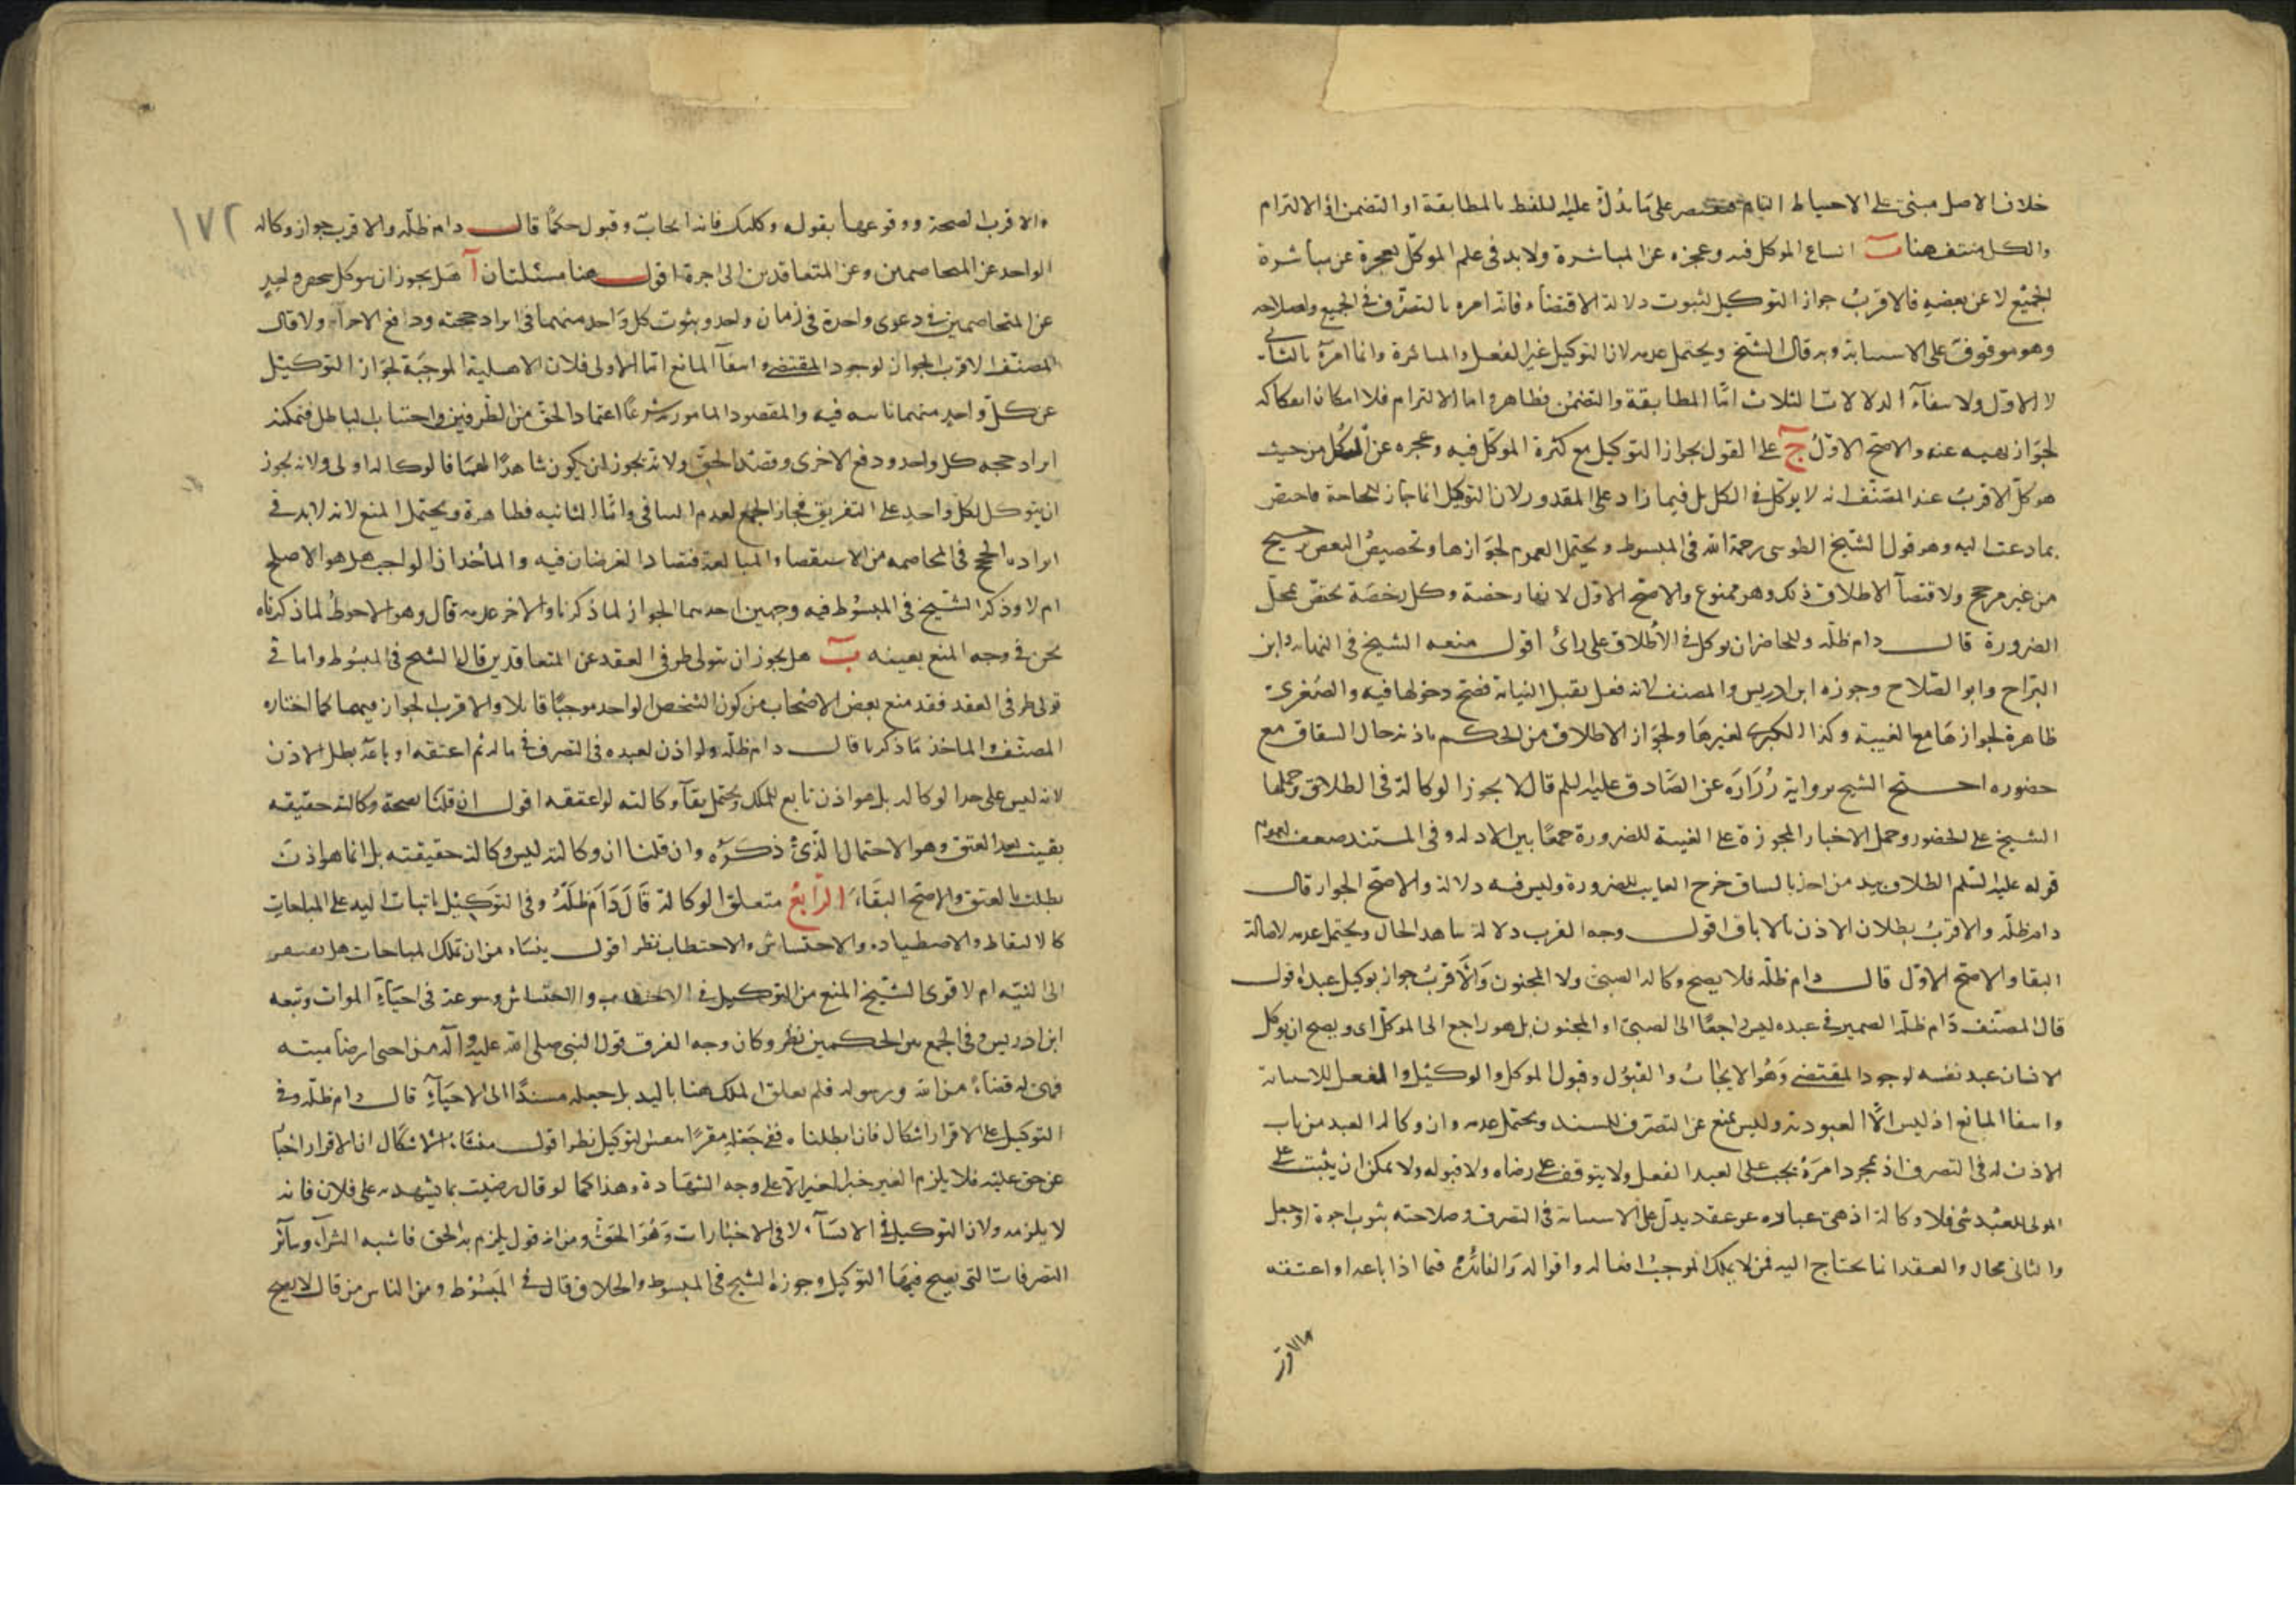 خلاف الاصل مبنى على الاحتياط التام على ما يدل عليه اللفظ بالمطابقة او التضمن او الالتزام
والكل منتف هنا ب اتساع الموكل فيه وعجزه عن المباشرة ولا بد فى علم الموكل بعجزه عن مباشرة
الجميع لا عن بعضه فالاقرب جواز التوكيل لثبوت دلالة الاقتضاء فانه امره بالتصرف فى الجميع ولصلاحه
وهو موقوف على الاستنابة وبه قال الشيخ ويحتمل عدمه لان التوكيل غير الفعل والمباشرة وانما امره بالثانى
لا الاول ولانتفاء الدلالات الثلاث اما المطابقة والتضمن فظاهر واما الالتزام فلامكان انفكاكه
لجواز نهيه عنه والاصح الاول ج على القول بجواز التوكيل مع كثرة الموكل فيه وعجزه عن الكل من حيث
هو كل الاقرب عند المصنف انه لا يوكل فى الكل بل فيما زاد على المقدور لان التوكيل انما جاز للحاجة فاختص
بما دعت اليه وهو قول الشيخ الطوسى رحمة الله فى المبسوط ويحتمل العموم لجوازها وتخصيص البعض ترجيح
من غير مرجح ولاقتضاء الاطلاق ذلك وهو ممنوع والاصح الاول لانها رخصة وكل رخصة تختص بمحل
الضرورة قال دام ظله وللحاضر ان يوكل فى الطلاق على راى اقول منعه الشيخ فى النهاية وابن
البراج وابو الصلاح وجوزه ابن ادريس والمصنف لانه فعل يقبل النيابة فصح دخولها فيه والصغرى
ظاهرة لجوازها مع الغيبة وكذا الكبرى لغيرها ولجواز الاطلاق من الحكم باذنه حال الشقاق مع
حضوره احتج الشيخ برواية زرارة عن الصادق عليه السلم قال لا يجوز الوكالة فى الطلاق وحملها
الشيخ على الحضور وحمل الاخبار المجوزة على الغيبة للضرورة جمعا بين الادلة وفى المستند ضعف لعموم
قوله عليه السلم الطلاق بيد من اخذ بالساق خرج الغايب للضرورة وليس فيه دلالة والاصح الجواز قال
دام ظله والاقرب بطلان الاذن بالاباق اقول وجه القرب دلالة شاهد الحال ويحتمل عدمه لاصالة
البقا والاصح الاول قال دام ظله فلا يصح وكالة الصبى ولا المجنون والاقرب جواز توكيل عبده اقول
قال المصنف دام ظله الضمير فى عبده ليس راجعا الى الصبى او المجنون بل هو راجع الى الموكل اى ويصح ان يوكل
الانسان عبد نفسه لوجود المقتضى وهو الايجاب والقبول وقبول الموكل والوكيل والفعل للاستنابة
وانتفا المانع اذ ليس الا العبودية وليس تمنع عن التصرف للسيد ويحتمل عدمه وان وكالة العبد من باب
الاذن له فى التصرف اذ بمجرد امره يجب على العبد الفعل ولا يتوقف على رضاه ولا قبوله ولا يمكن ان يثبت على
المولى للعبد شى فلا وكالة اذ هى عبارة عن عقد يدل على الاستنابة فى التصرف وصلاحته بثوب اجرة او جعل
والثانى محال والعقد انما يحتاج اليه فمن لا يملك الموجب افعاله واقواله والفائدة فيما اذا باعه او اعتقه
والاقرب
١٧٢
والاقرب الصحة ووقوعها بقوله وكلتك فانه ايجاب وقبول حكما قال دام ظله والاقرب جواز وكالة
الواحد عن المتخاصمين وعن المتعاقدين الى اخره اقول هنا مسئلتان آ هل يجوز ان يتوكل شخص واحد
عن المتخاصمين فى دعوى واحدة فى زمان واحد وينوب كل واحد منهما فى ايراد حجته ودافع الاخر ام لا قال
المصنف الاقرب الجواز لوجود المقتضى وانتفا المانع اما الاولى فلان الاهلية الموجبة لجواز التوكيل
عن كل واحد منهما ثابتة فيه والمقصود المامور به شرعا اعتماد الحق من الطرفين واجتناب الباطل فيمكنه
ايراد حجة كل واحد ودفع الاخرى وقصد الحق ولانه يجوز ان يكون شاهدا لهما فالوكالة اولى ولانه يجوز
ان يتوكل لكل واحد على التفريق فجاز الجمع لعدم التنافى واما الثانية فظاهرة ويحتمل المنع لانه لا بد فى
ايراده الحجج فى المخاصمة من الاستقصاء والمبالغة فتضاد الغرضان فيه والمأخذ ان الواجب هل هو الاصلح
ام لا وذكر الشيخ فى المبسوط فيه وجهين احدهما الجواز لما ذكرنا والاخر عدمه قال وهو الاحوط لما ذكرناه
نحن فى وجه المنع بعينه ب هل يجوز ان يتولى طرفى العقد عن المتعاقدين قال الشيخ فى المبسوط واما فى
تولى طرفى العقد فقد منع بعض الاصحاب من كون الشخص الواحد موجبا قابلا والاقرب الجواز فيهما كما اختاره
المصنف والماخذ ما ذكرنا قال دام ظله ولو اذن لعبده فى التصرف فى ماله ثم اعتقه او باعه بطل الاذن
لانه ليس على حد الوكالة بل هو اذن تابع للملك ويحتمل بقاء وكالته لو اعتقه اقول ان قلنا بصحة وكالته حقيقة
بقيت بعد العتق وهو الاحتمال الذى ذكره وان قلنا ان وكالته ليس وكالة حقيقته بل انما هو اذن
بطلت بالعتق والاصح البقاء الرابع متعلق الوكالة قال دام ظله وفى التوكيل باثبات اليد على المباحات
كالالتقاط والاصطياد والاحتشاش والاحتطاب نظر اقول ينشاء من ان تملك المباحات هل يفتقر
الى النية ام لا قوى الشيخ المنع من التوكيل فى الاحتطاب والاحتشاش وسوغه فى احياء الموات وتبعه
ابن ادريس وفى الجمع بين الحكمين نظر وكان وجه الفرق قول النبى صلى الله عليه وآله من احيى ارضا ميتة
فهى له قضاء من الله ورسوله فلم يعلق الملك هنا باليد بل جعله مسندا الى الاحياء قال دام ظله وفى
التوكيل على الاقرار اشكال فان ابطلناه ففى جعله مقرا بنفس التوكيل نظر اقول منشاء الاشكال ان الاقرار اخبار
عن حق عليه فلا يلزم الغير خبر الغير الا على وجه الشهادة وهذا كما لو قال رضيت بما يشهد به على فلان فانه
لا يلزمه ولان التوكيل فى الانشاء لا فى الاخبارات وهو الحق ومن انه قول يلزم به الحق فاشبه الشراء وسائر
التصرفات التى يصح فيها التوكيل وجوزه الشيخ فى المبسوط والخلاف قال فى المبسوط ومن الناس من قال لا يصح